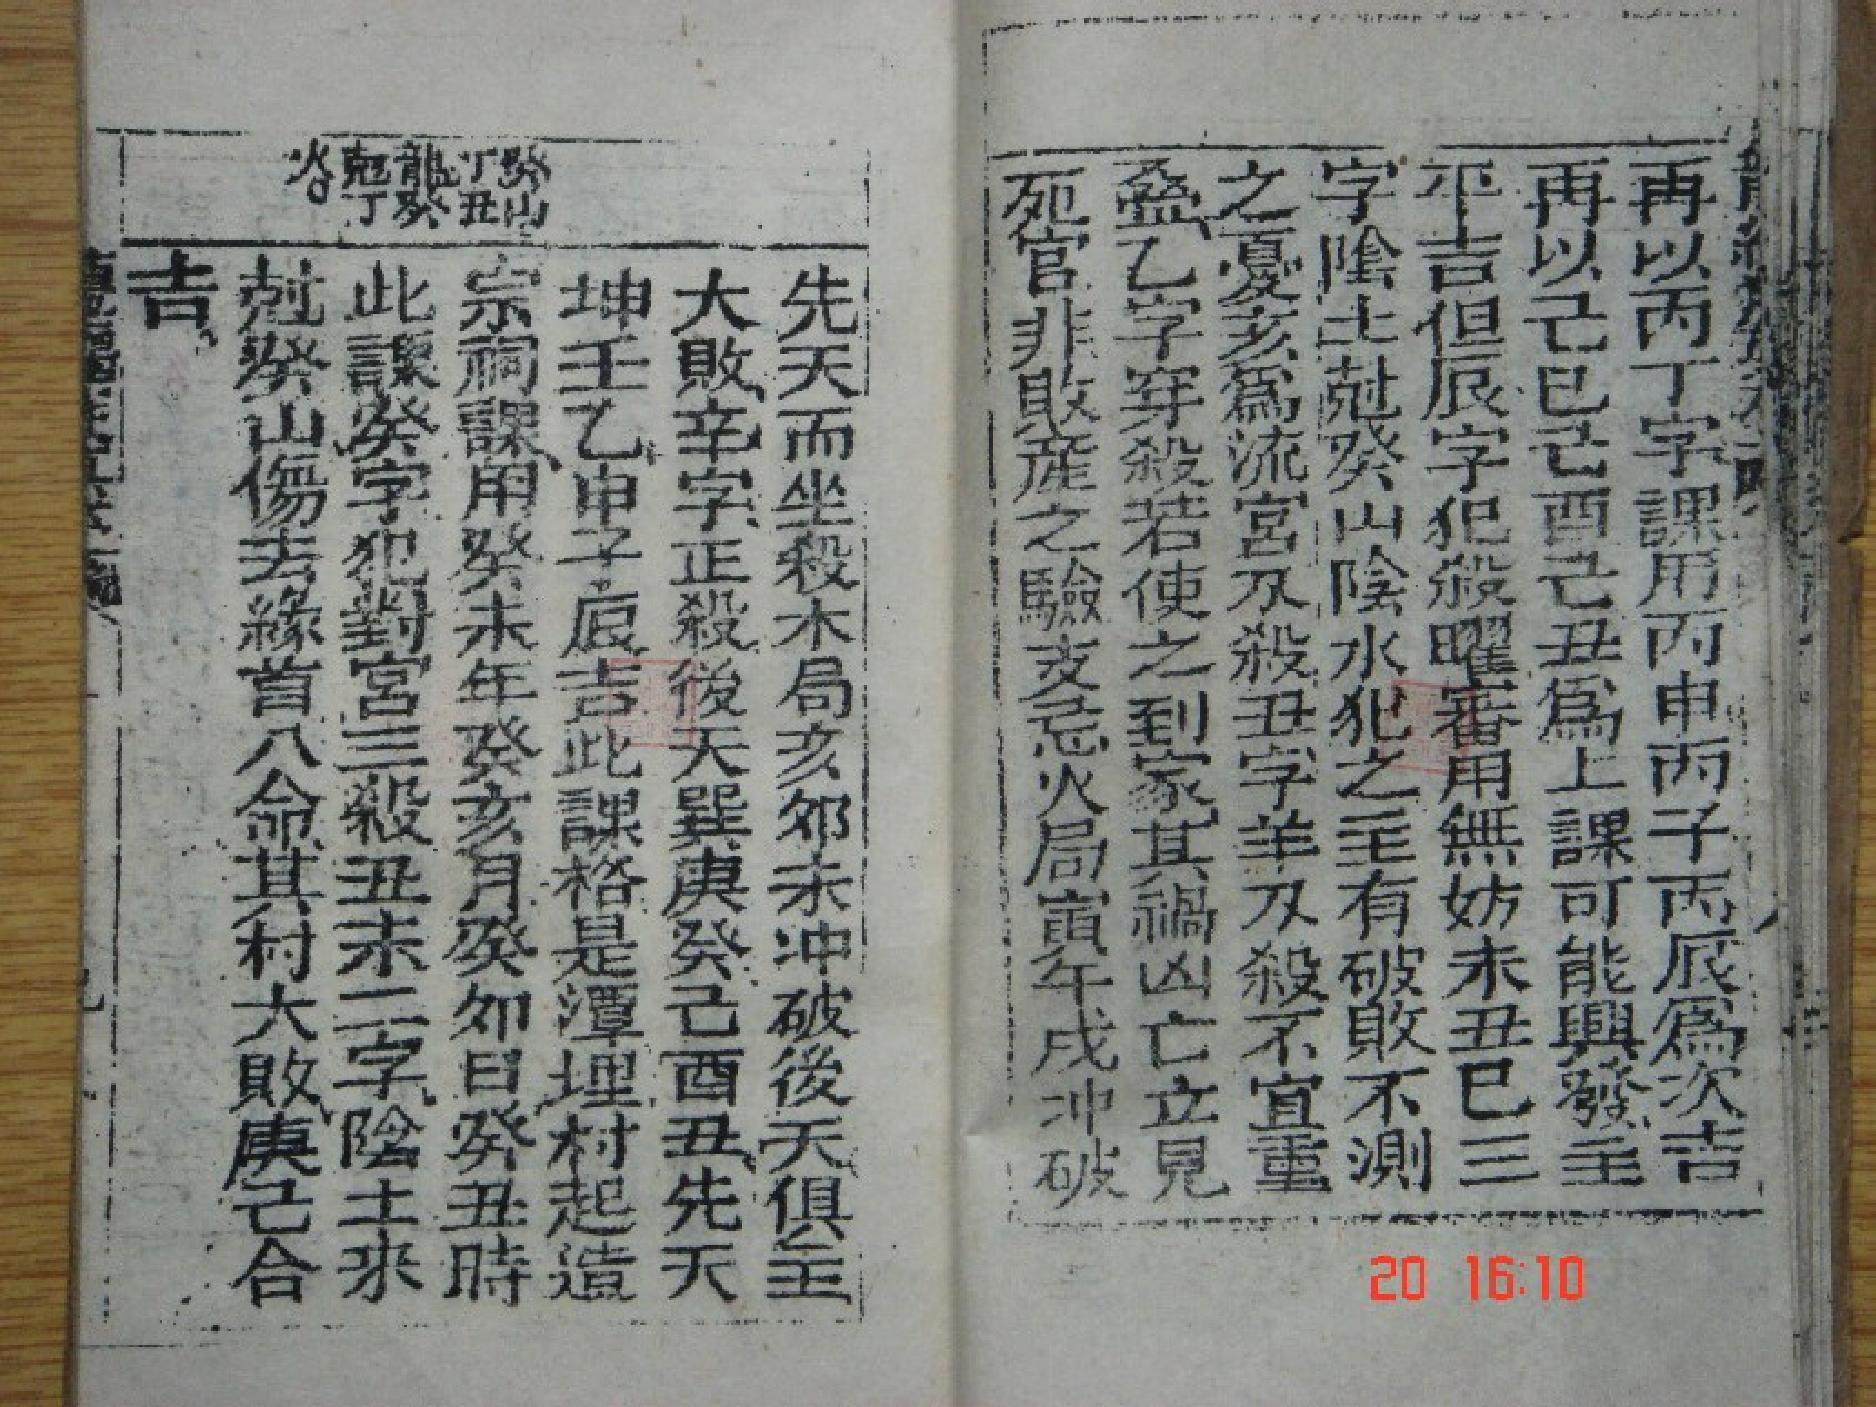 再以丙丁字課用丙申丙子丙辰為次吉
再以己巳己酉己丑為上課可能興發主
平吉但辰字犯殺曜審用無妨未丑巳三
字陰土尅癸山陰水犯之主有破敗不測
之憂亥為流宮及殺丑字羊刃殺不宜重
叠乙字穿殺若使之到家其禍凶亡立見
死官非敗產之驗支忌火局寅午戌冲破
癸山
丁丑
龍癸
尅丁
先天而坐殺木局亥夘未冲破後天俱主
大敗辛字正殺後天巽庚癸己酉丑先天
坤壬乙申子辰吉此課格是潭埋村起造
宗祠課用癸未年癸亥月癸夘日癸丑時
此課癸字犯對宮三殺丑未二字陰土來
尅癸山傷去緣首八命其村大敗庚己合
吉
20 16:10